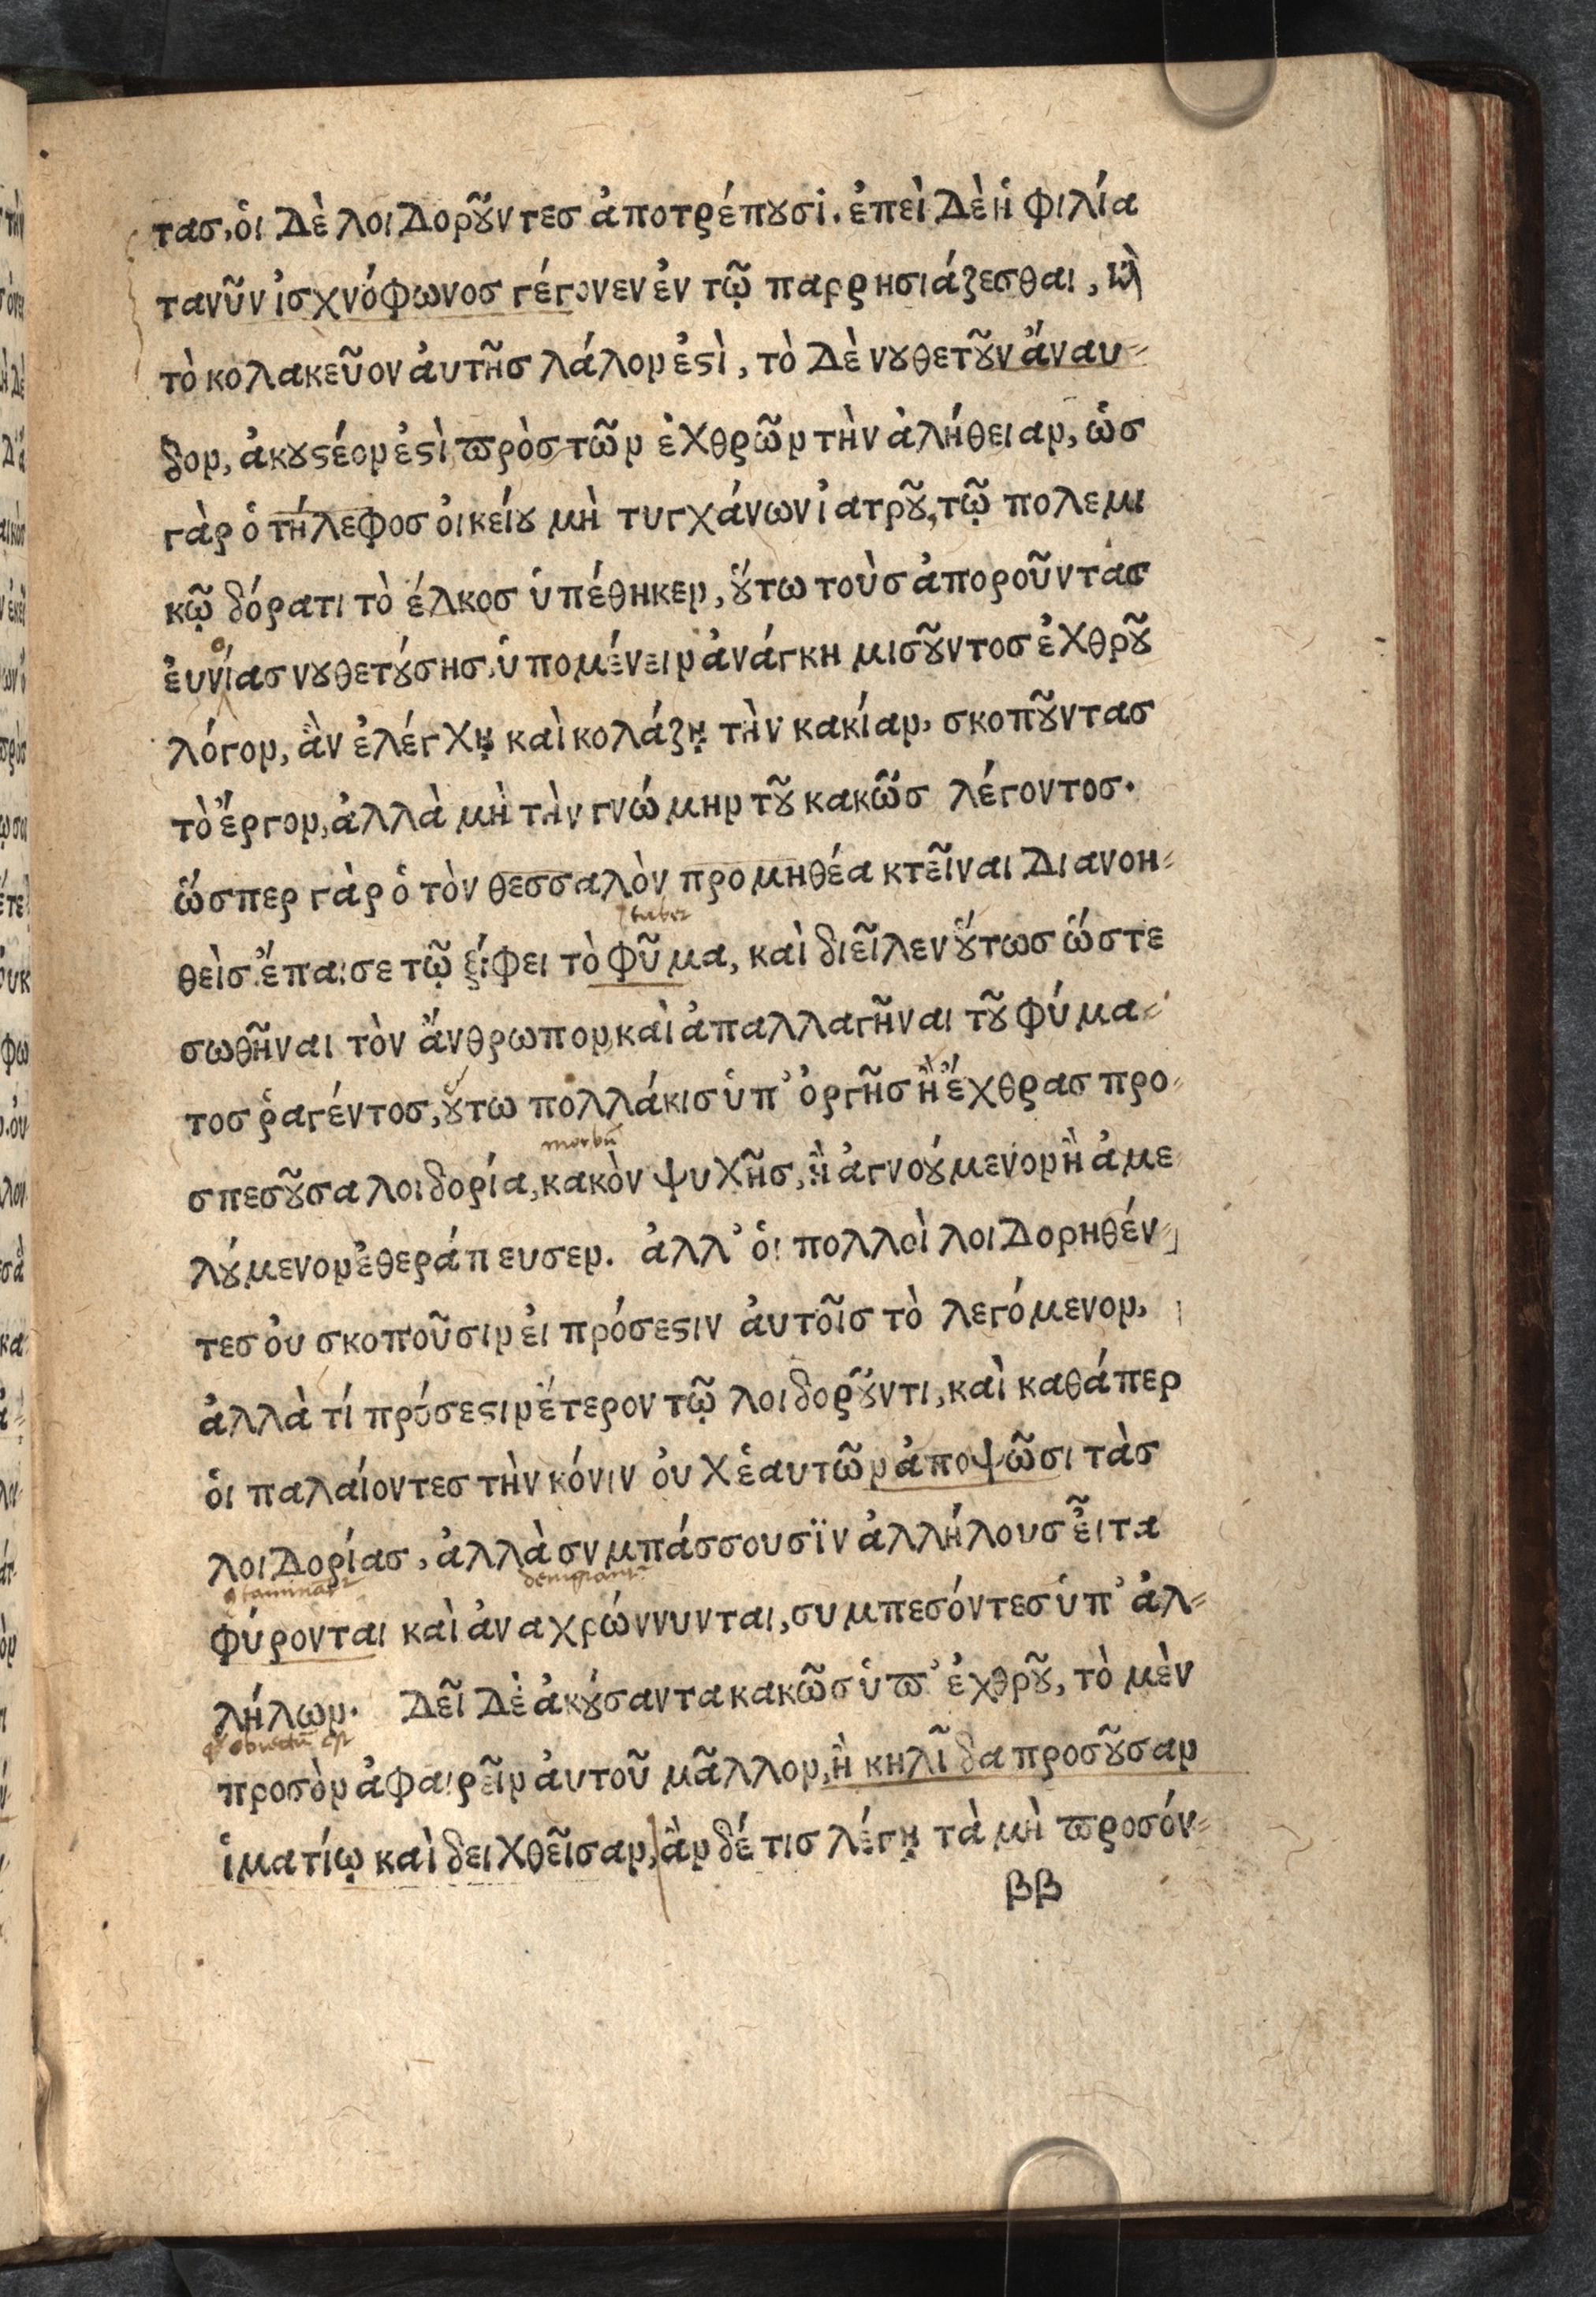 τας, ὁι Δὲ λοιΔορȣ͂ντες ἀποτρέπȣσἰ. ἐπεὶ Δὲ ἡ φιλία
τανῦν ἰσχνόφωνος γέγονεν ἐν τῷ παρρησιάζεσθαι, ϗ̀
τὸ κολακεῦον ἀυτῆς λάλον ἐϛὶ, τὸ Δὲ νȣθετȣ͂ν ἄναυ⸗
δον, ἀκȣϛέον ἐϛὶ πρὸς τῶν ἐχθρῶν τὴν ἀλήθειαν, ὡς
γὰρ ὁ τήλεφος ὀικείȣ μὴ τυγχάνων ἰατρȣ͂, τῷ πολεμι
κῷ δόρατι τὸ έλκος ὑπέθηκεν, ȣ̓́τω τοὺς ἀποροῦντας
ἐυνίας νȣθετȣ́σης, ὑπομένειν ἀνάγκη μισȣ͂ντος ἐχθρȣ͂
λόγον, ἂν ἐλέγχῃ καὶ κολάζῃ τὴν κακίαν, σκοπȣ͂ντας
τὸ ἔργον, ἀλλὰ μὴ τὴν γνώμην τȣ͂ κακῶς λέγοντος.
ὥσπερ γὰρ ὁ τὸν θεσσαλὸν προμηθέα κτεῖναι Διανοη⸗
tuber
θεὶς ἔπαισε τῷ ξίφει τὸ φῦμα, καὶ διεῖλεν ȣ̔́τως ὥστε
σωθῆναι τὸν ἄνθρωπον, καὶ ἀπαλλαγῆναι τȣ͂ φύμα⸗
τος ῥαγέντος, ȣ̔́τω πολλάκις ὑπ’ ὀργῆς ἢ ἔχθρας προ⸗
morbũ
σπεσȣ͂σα λοιδορία, κακὸν ψυχῆς, ἢ ἀγνοȣ́μενον ἢ ἀμε
λȣ́μενον ἐθεράπευσεν. ἀλλ’ ὁι πολλοὶ λοιΔορηθέν⸗
τες ὀυ σκοποῦσιν ἐι πρόσεϛιν ἀυτοῖς τὸ λεγόμενον,
ἀλλὰ τί πρόσεϛιν ἕτερον τῷ λοιδορȣ͂ντι, καὶ καθάπερ
ὁι παλαίοντες τὴν κόνιν ὀυχ ἑαυτῶν ἀποψῶσι τὰς
λοιΔορίας, ἀλλὰ συμπάσσουσϊν ἀλλήλους εἶτα
φύρονται καὶ ἀναχρώννυνται, συμπεσόντες ὑπ’ ἀλ⸗
λήλων. Δεῖ Δὲ ἀκȣ́σαντα κακῶς ὑπ’ ἐχθρȣ͂, τὸ μὲν
προσὸν ἀφαιρεῖν ἀυτοῦ μᾶλλον, ἢ κηλῖδα προσȣ͂σαν
ἱματίῳ καὶ δειχθεῖσαν, ἂν δέ τις λέγῃ τὰ μὴ προσόν⸗
ββ